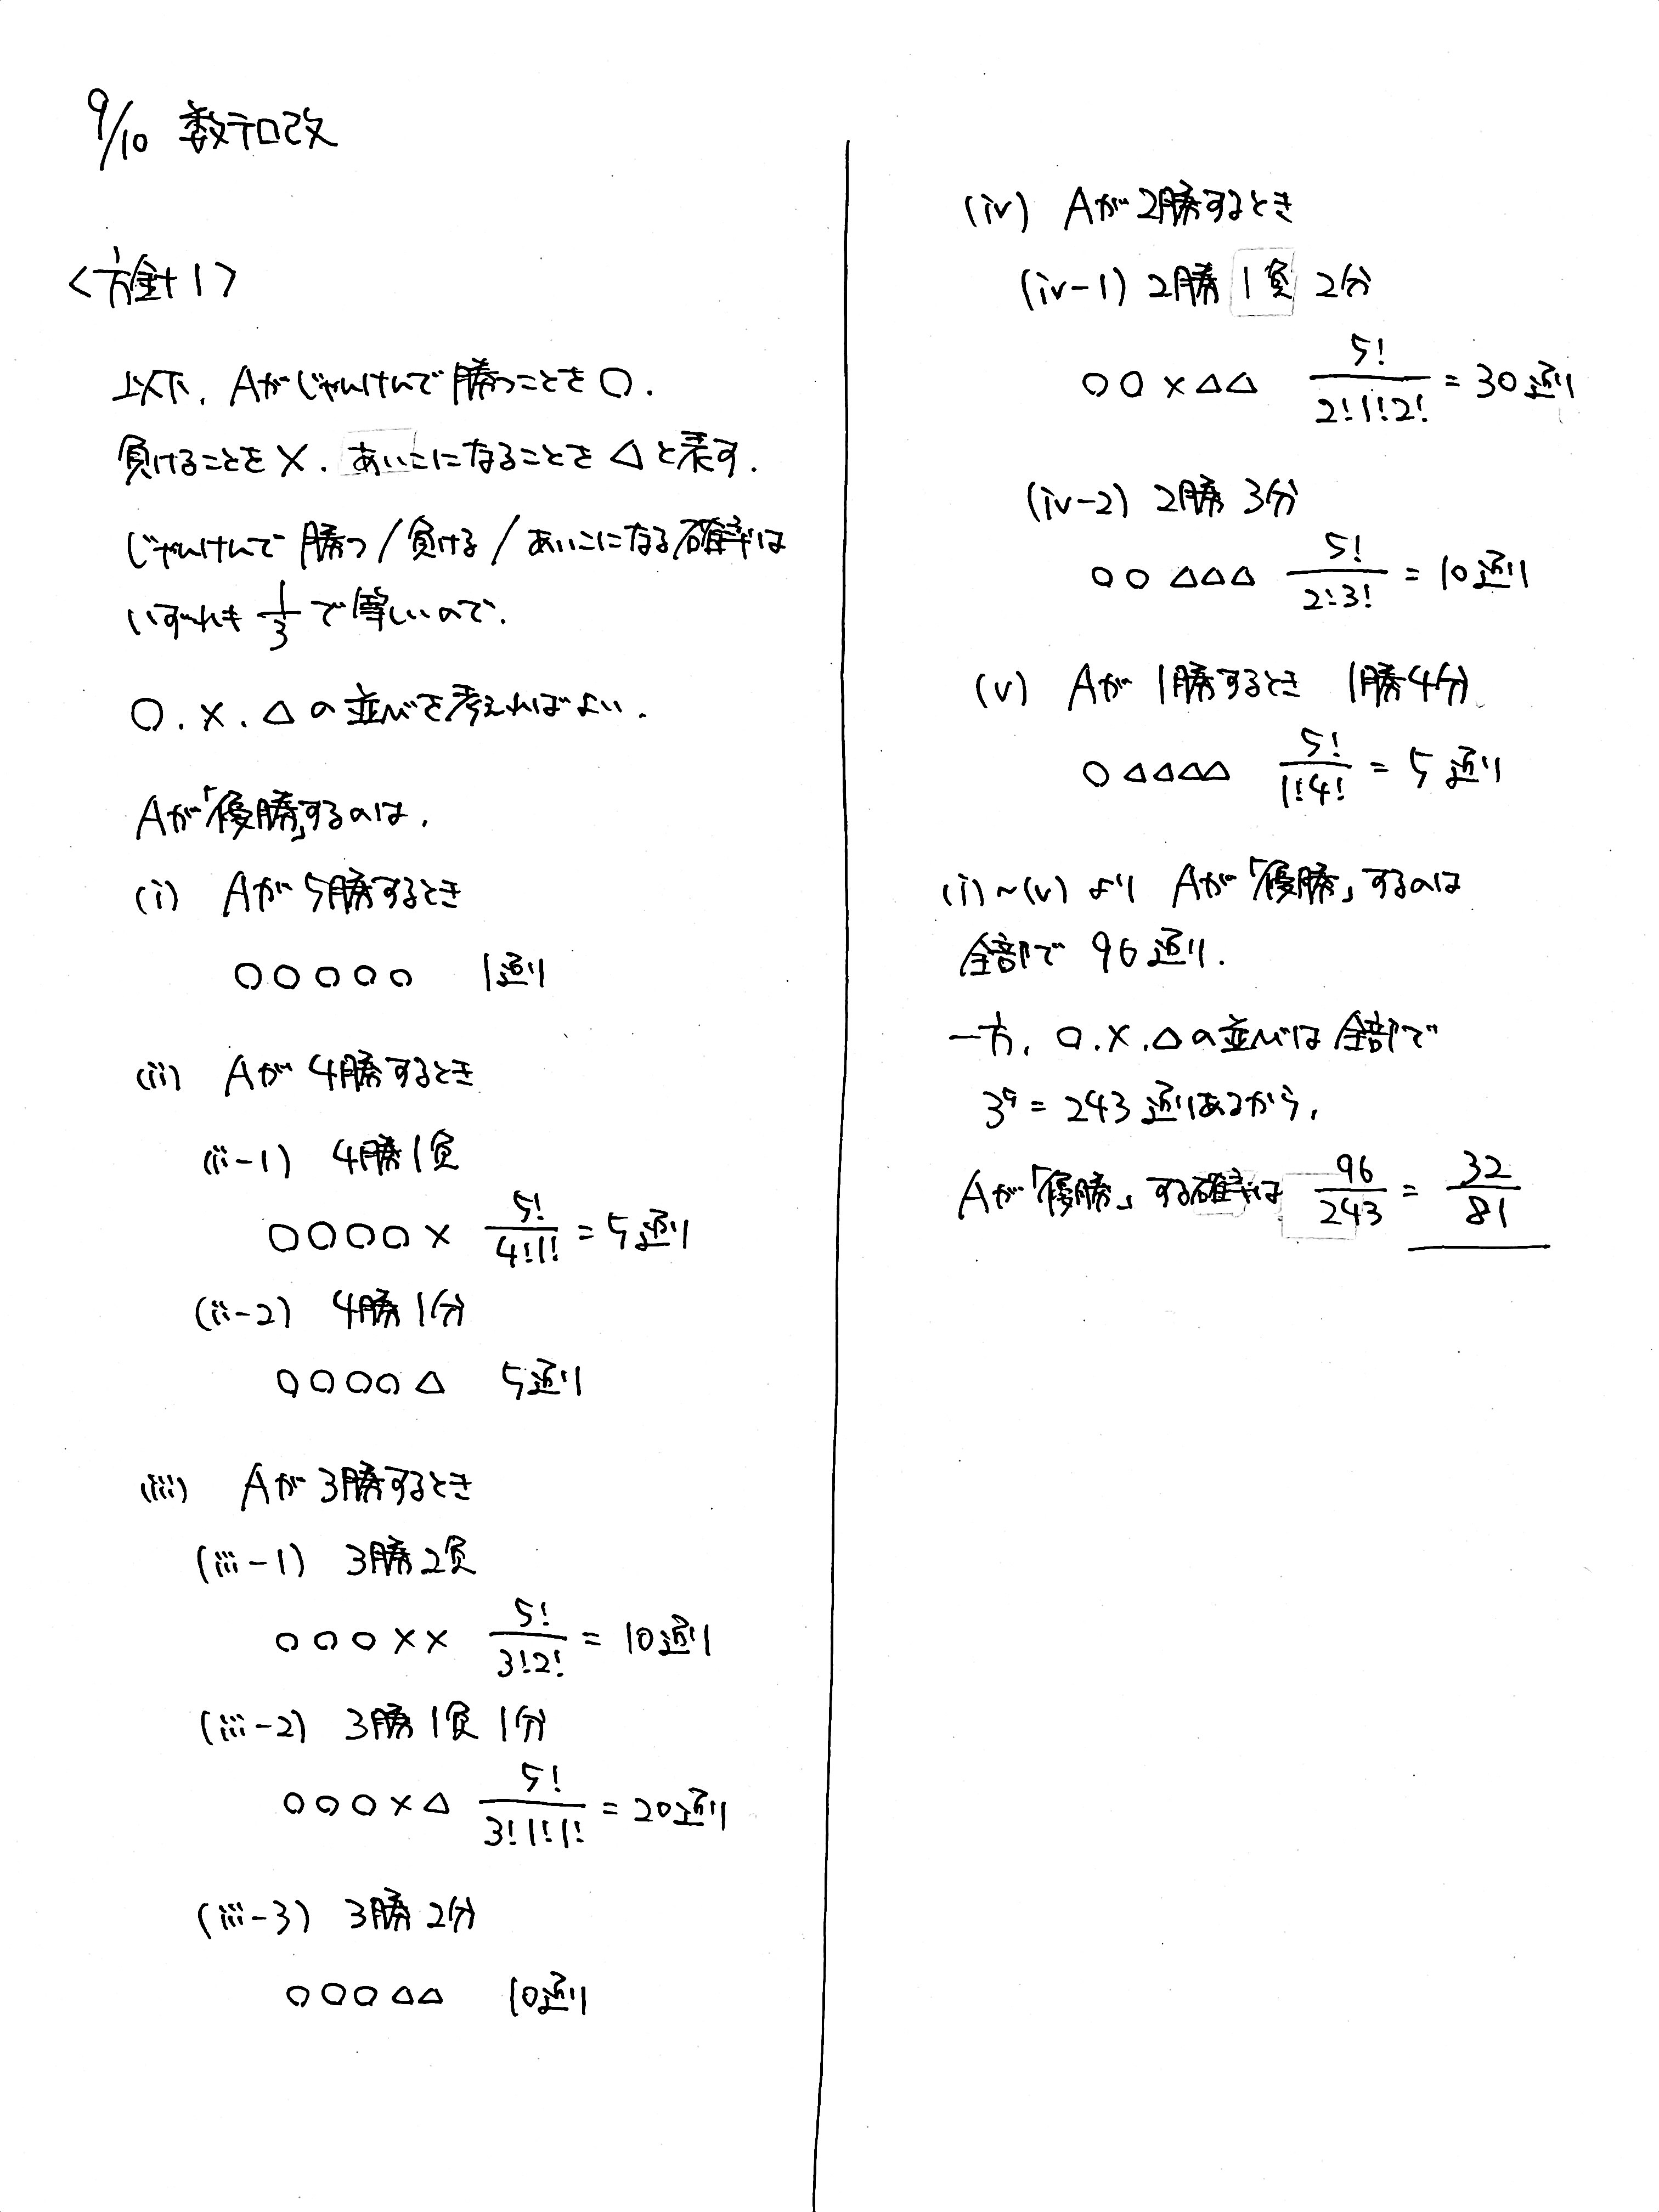 9/10 数テロ改
<方針1>
以下、Aがじゃんけんで勝つことを○、
負けることを×、あいこになることを△と表す.
じゃんけんで勝つ/負ける/あいこになる確率は
いずれも 1/3 で等しいので、
○、×、△の並びを考えればよい.
Aが「優勝」するのは、
(i) Aが5勝するとき
○○○○○ 1通り
(ii) Aが4勝するとき
(ii-1) 4勝1負
○○○○× 5!/4!1! = 5通り
(ii-2) 4勝1分
○○○○△ 5通り
(iii) Aが3勝するとき
(iii-1) 3勝2負
○○○×× 5!/3!2! = 10通り
(iii-2) 3勝1負1分
○○○×△ 5!/3!1!1! = 20通り
(iii-3) 3勝2分
○○○△△ 10通り
(iv) Aが2勝するとき
(iv-1) 2勝1負2分
○○×△△ 5!/2!1!2! = 30通り
(iv-2) 2勝3分
○○△△△ 5!/2!3! = 10通り
(v) Aが1勝するとき 1勝4分
○△△△△ 5!/1!4! = 5通り
(i)~(v)より Aが「優勝」するのは
全部で 96通り.
一方、○、×、△の並びは全部で
3⁵ = 243 通りあるから、
Aが「優勝」する確率は 96/243 = 32/81